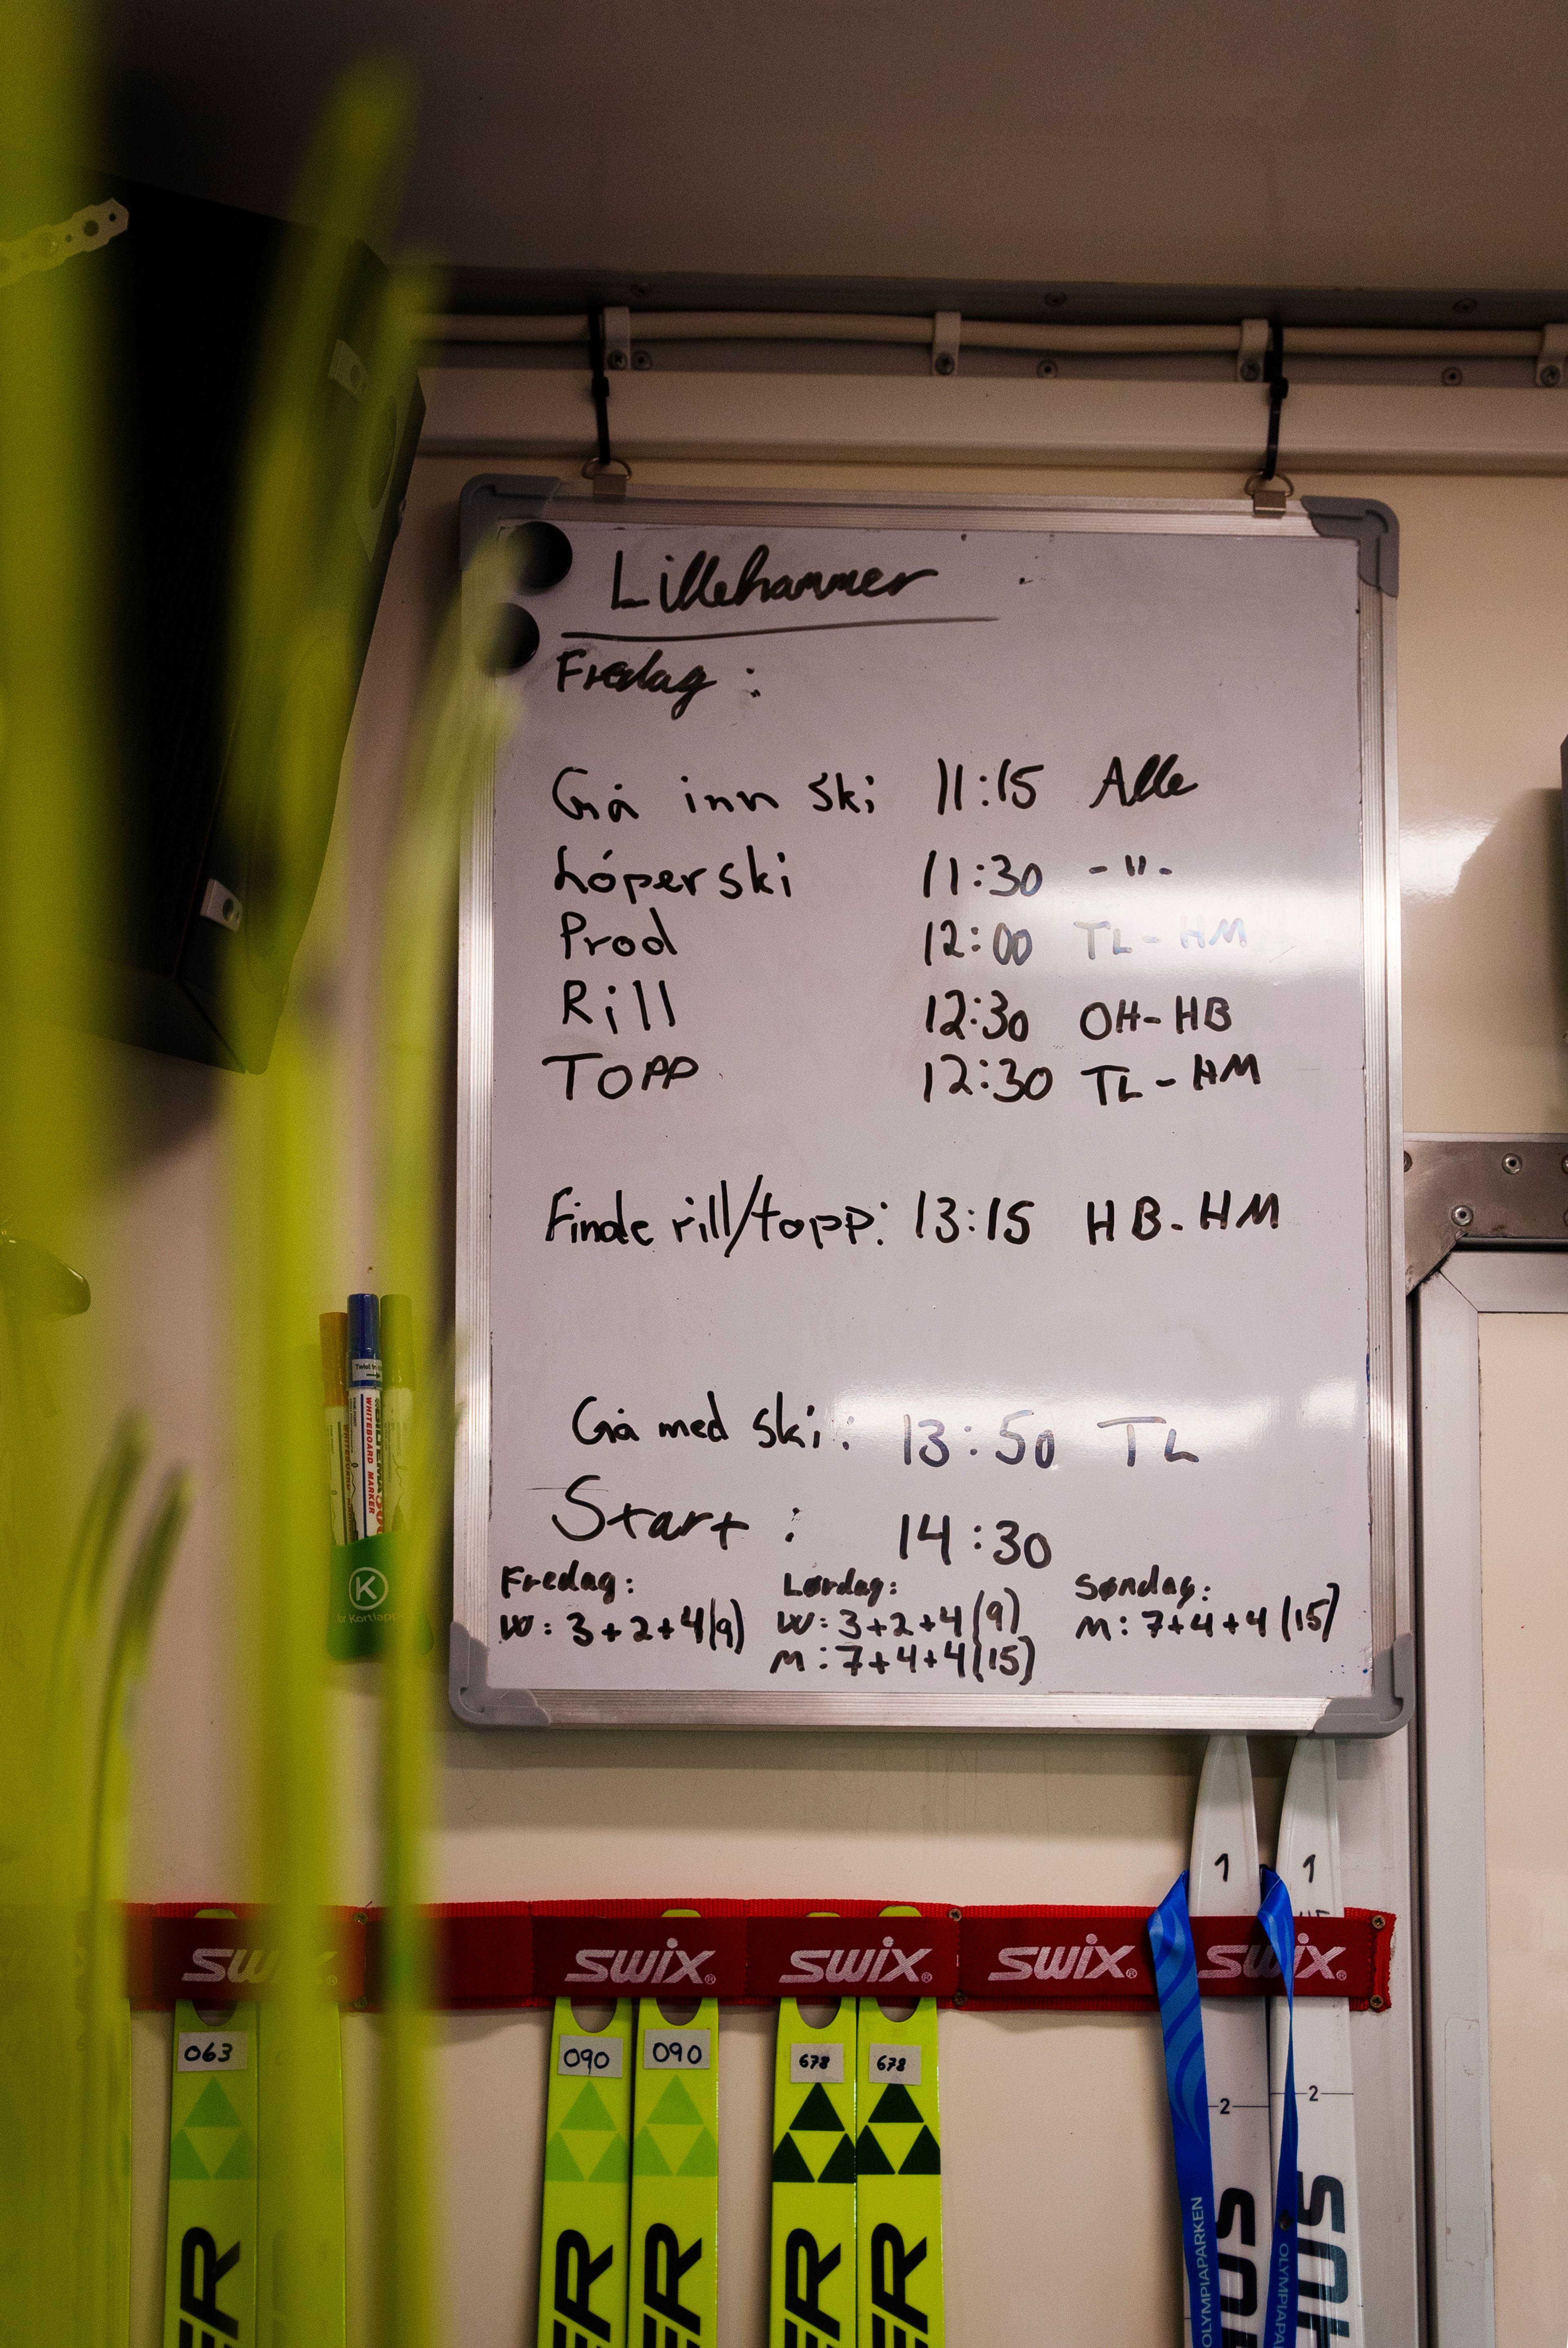 Lillehammer
Fredag :
Gå inn ski 11:15 Alle
Løperski 11:30 -"-
Prod 12:00 TL-HM
Rill 12:30 OH-HB
TOPP 12:30 TL-HM
Finde rill/topp: 13:15 HB-HM
Gå med ski: 13:50 TL
Start : 14:30
Fredag: Lørdag: Søndag:
W: 3+2+4(9) W: 3+2+4(9) M: 7+4+4(15)
M: 7+4+4(15)
WHITEBOARD MARKER
K
1 1
swix swix swix swix swix
063 090 090 678 678
2 2
OLYMPIAPARKEN